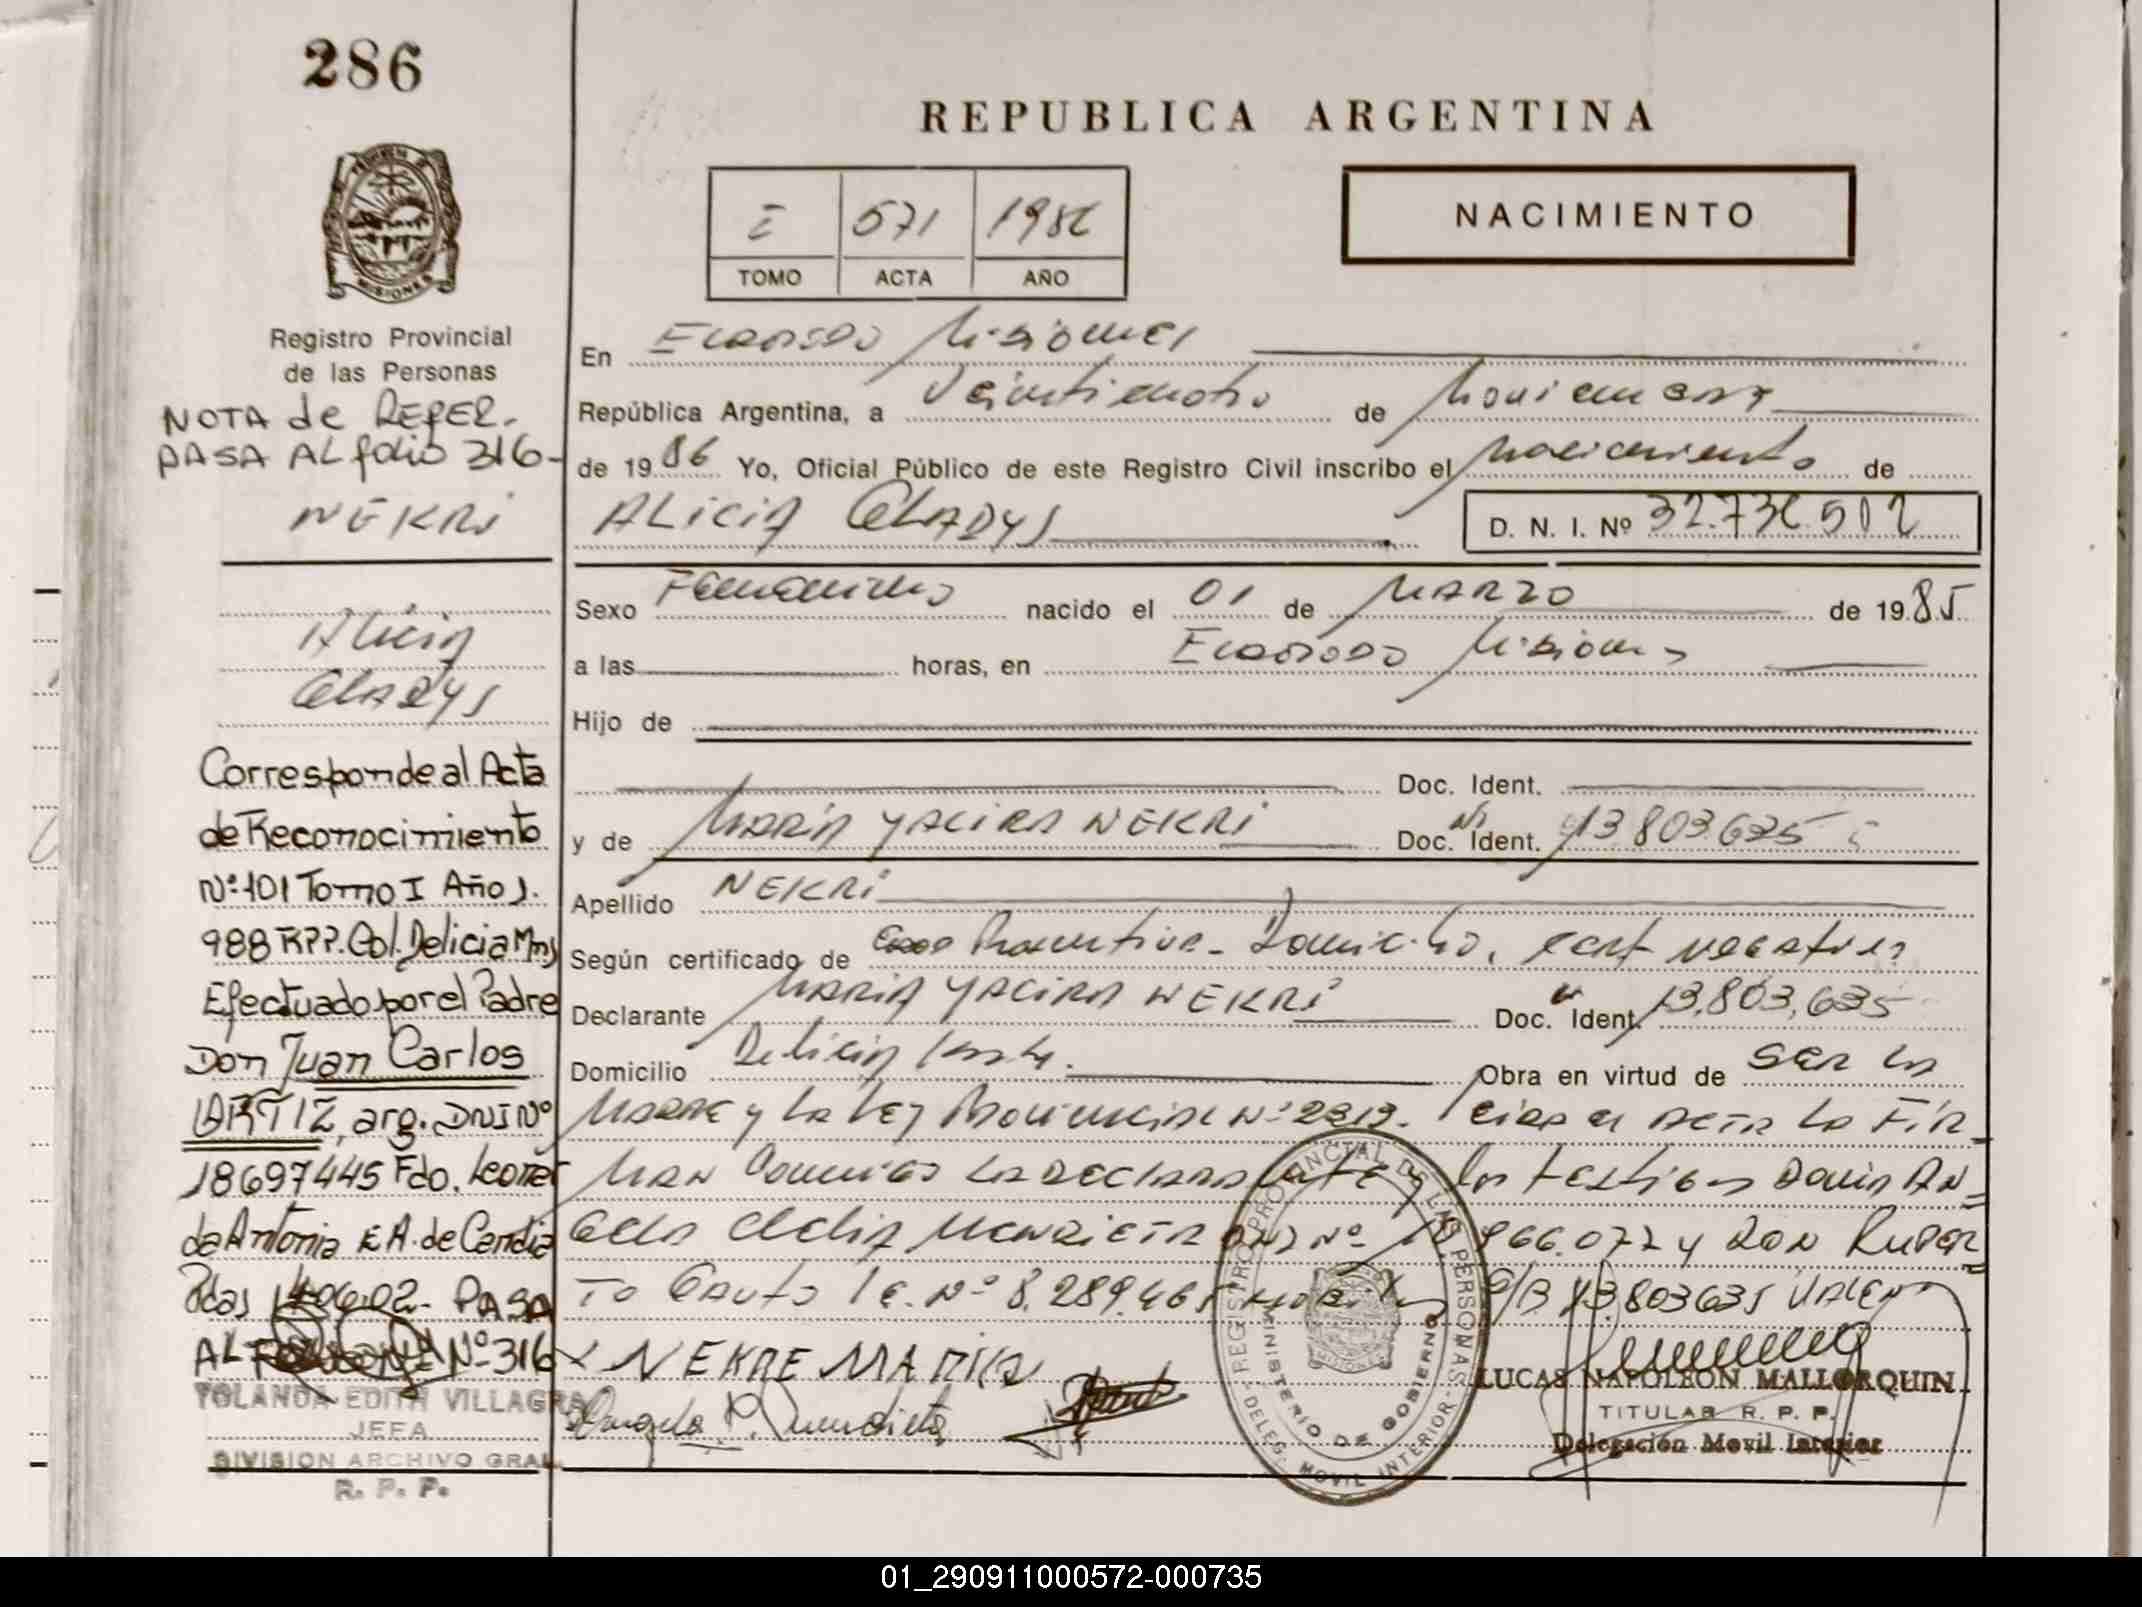 286
REPUBLICA ARGENTINA
I 571 1986
TOMO ACTA AÑO
NACIMIENTO
PROVINCIA DE
MISIONES
Registro Provincial
de las Personas
NOTA de REFER.
PASA AL folio 316-
NEKRI
Alicia
Gladys
Corresponde al Acta
de Reconocimiento
Nº 101 Tomo I Año 1.
988 R.P.P. Col. Delicia Mns
Efectuado por el Padre
Don Juan Carlos
ORTIZ, arg. DNI Nº
18697445 Fdo. Leonor
da Antonia E A. de Candia
Pdas 14 06.02- PASA
AL Nº 316
YOLANDA EDITH VILLAGRA
JEFA
DIVISION ARCHIVO GRAL.
R. P. P.
En Eldorado Misiones
República Argentina, a Veinticuatro de Noviembre
de 19 86 Yo, Oficial Público de este Registro Civil inscribo el nacimiento de
ALICIA GLADYS D. N. I. Nº 32.736.502
Sexo Femenino nacido el 01 de MARZO de 19 85
a las horas, en Eldorado Misiones
Hijo de
Doc. Ident.
y de MARIA YACIRA NEKRI Doc. Ident. Nº 13.803.635
Apellido NEKRI
Según certificado de Domicilio, cert negativo
Declarante MARIA YACIRA NEKRI Doc. Ident. Nº 13.803.635
Domicilio Delicia Obra en virtud de SER LA
MADRE y LA LEY PROVINCIAL Nº 2313. el ACTA LA FIR-
MAN Conmigo LA DECLARANTE y los testigos Doña AN-
GELA MENDIETA DNI Nº 966.077 y DON RUPER-
TO Nº 8.289.465 S/B 13.803635 VALEN
NEKRE MARIA
Angela Mendieta
REGISTRO PROVINCIAL DE LAS PERSONAS
MINISTERIO DE GOBIERNO
DELEG. MOVIL INTERIOR
MISIONES
LUCAS NAPOLEON MALLORQUIN
TITULAR R. P. P.
Delegación Movil Interior
01_290911000572-000735